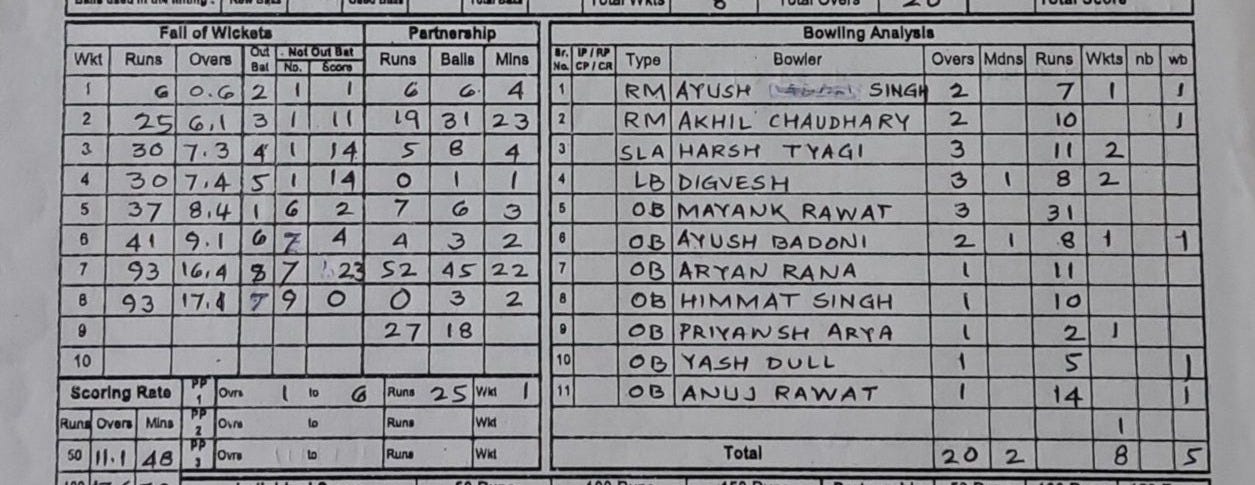 Total Wkts 8 Total Overs 20 Total Score
Fall of Wickets Partnership Bowling Analysis
Wkt Runs Overs Out Bat Not Out Bat No. Score Runs Balls Mins Br. No. IP / RP CP / CR Type Bowler Overs Mdns Runs Wkts nb wb
1 6 0.6 2 1 1 6 6 4 1 RM AYUSH SINGH 2 7 1 1
2 25 6.1 3 1 11 19 31 23 2 RM AKHIL CHAUDHARY 2 10 1
3 30 7.3 4 1 14 5 8 4 3 SLA HARSH TYAGI 3 11 2
4 30 7.4 5 1 14 0 1 1 4 LB DIGVESH 3 1 8 2
5 37 8.4 1 6 2 7 6 3 5 OB MAYANK RAWAT 3 31
6 41 9.1 6 7 4 4 3 2 6 OB AYUSH BADONI 2 1 8 1 1
7 93 16.4 8 7 23 52 45 22 7 OB ARYAN RANA 1 11
8 93 17.1 7 9 0 0 3 2 8 OB HIMMAT SINGH 1 10
9 27 18 9 OB PRIYANSH ARYA 1 2 1
10 10 OB YASH DULL 1 5 1
Scoring Rate PP 1 Ovrs 1 to 6 Runs 25 Wkt 1 11 OB ANUJ RAWAT 1 14 1
Runs Overs Mins PP 2 Ovrs to Runs Wkt 1
50 11.1 48 PP 3 Ovrs to Runs Wkt Total 20 2 8 5